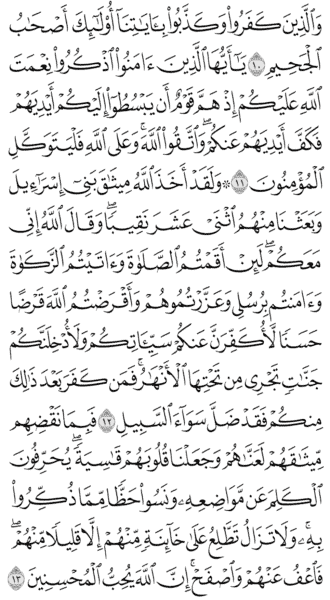 وَٱلَّذِينَ كَفَرُوا۟ وَكَذَّبُوا۟ بِـَٔايَـٰتِنَآ أُو۟لَـٰٓئِكَ أَصْحَـٰبُ
ٱلْجَحِيمِ ١٠ يَـٰٓأَيُّهَا ٱلَّذِينَ ءَامَنُوا۟ ٱذْكُرُوا۟ نِعْمَتَ
ٱللَّهِ عَلَيْكُمْ إِذْ هَمَّ قَوْمٌ أَن يَبْسُطُوٓا۟ إِلَيْكُمْ أَيْدِيَهُمْ
فَكَفَّ أَيْدِيَهُمْ عَنكُمْ ۖ وَٱتَّقُوا۟ ٱللَّهَ ۚ وَعَلَى ٱللَّهِ فَلْيَتَوَكَّلِ
ٱلْمُؤْمِنُونَ ١١ ۞ وَلَقَدْ أَخَذَ ٱللَّهُ مِيثَـٰقَ بَنِىٓ إِسْرَٰٓءِيلَ
وَبَعَثْنَا مِنْهُمُ ٱثْنَىْ عَشَرَ نَقِيبًا ۖ وَقَالَ ٱللَّهُ إِنِّى
مَعَكُمْ ۖ لَئِنْ أَقَمْتُمُ ٱلصَّلَوٰةَ وَءَاتَيْتُمُ ٱلزَّكَوٰةَ
وَءَامَنتُم بِرُسُلِى وَعَزَّرْتُمُوهُمْ وَأَقْرَضْتُمُ ٱللَّهَ قَرْضًا
حَسَنًا لَّأُكَفِّرَنَّ عَنكُمْ سَيِّـَٔاتِكُمْ وَلَأُدْخِلَنَّكُمْ
جَنَّـٰتٍ تَجْرِى مِن تَحْتِهَا ٱلْأَنْهَـٰرُ ۚ فَمَن كَفَرَ بَعْدَ ذَٰلِكَ
مِنكُمْ فَقَدْ ضَلَّ سَوَآءَ ٱلسَّبِيلِ ١٢ فَبِمَا نَقْضِهِم
مِّيثَـٰقَهُمْ لَعَنَّـٰهُمْ وَجَعَلْنَا قُلُوبَهُمْ قَـٰسِيَةً ۖ يُحَرِّفُونَ
ٱلْكَلِمَ عَن مَّوَاضِعِهِۦ ۙ وَنَسُوا۟ حَظًّا مِّمَّا ذُكِّرُوا۟
بِهِۦ ۚ وَلَا تَزَالُ تَطَّلِعُ عَلَىٰ خَآئِنَةٍ مِّنْهُمْ إِلَّا قَلِيلًا مِّنْهُمْ ۖ
فَٱعْفُ عَنْهُمْ وَٱصْفَحْ ۚ إِنَّ ٱللَّهَ يُحِبُّ ٱلْمُحْسِنِينَ ١٣